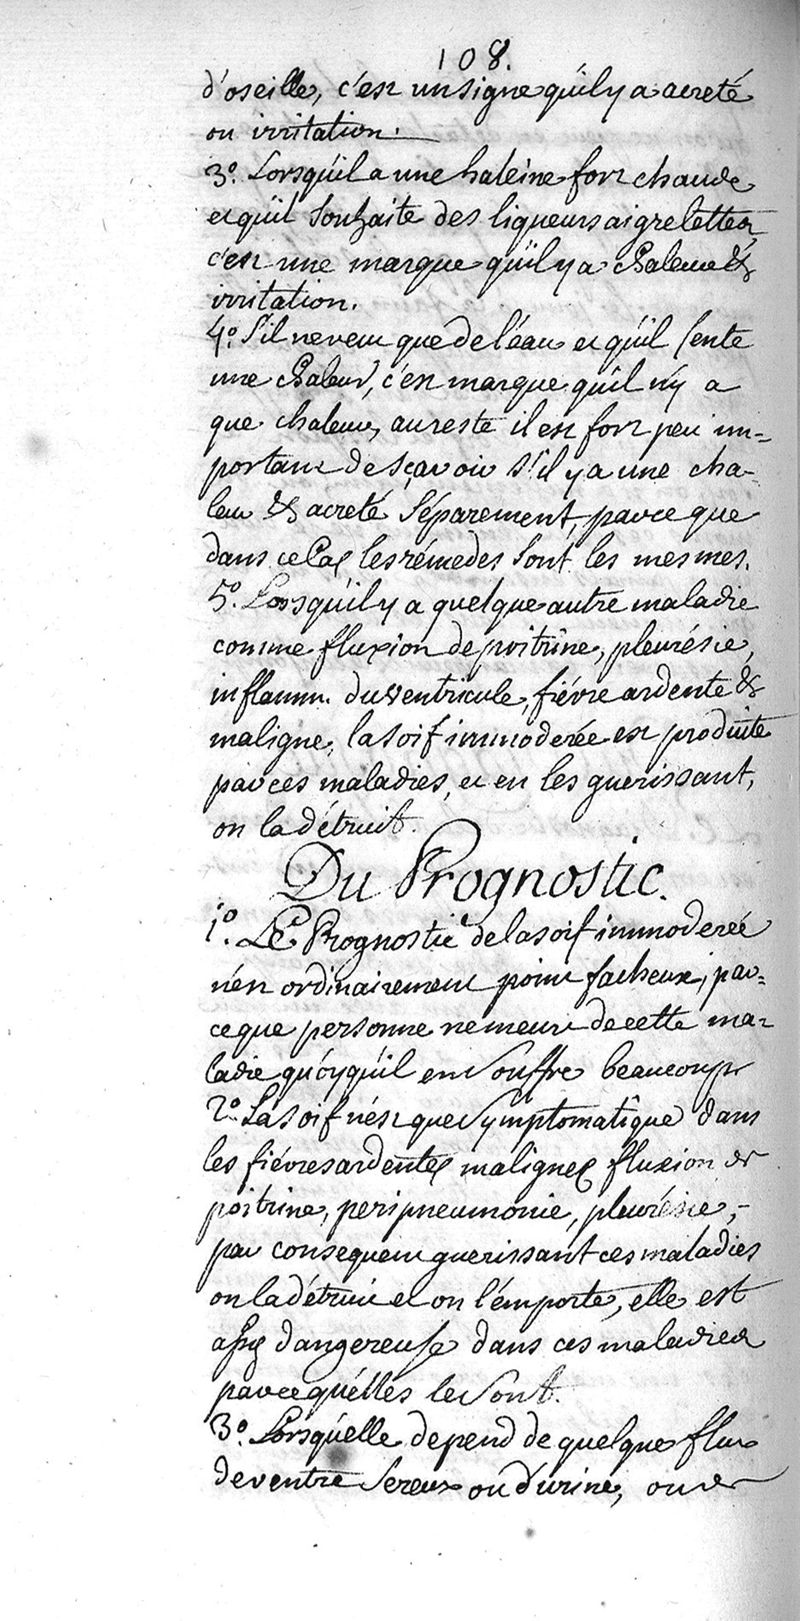 108.
d'oseille, c'est un signe qu'il y a acreté
ou irritation.
3.° Lorsqu'il a une haleine fort chaude
et qu'il souhaite des liqueurs aigrelettes,
c'est une marque qu'il y a chaleur &
irritation.
4.° S'il ne veut que de l'eau et qu'il sente
une chaleur, c'est marque qu'il n'y a
que chaleur, au reste il est fort peu im=
portant de sçavoir s'il y a une cha-
leur & acreté séparement, parce que
dans ce Cas les rémedes sont les mesmes.
5.° Lorsqu'il y a quelque autre maladie
comme fluxion de poitrine, pleurésie,
inflamm. du ventricule, fiévre ardente &
maligne, la soif immoderée est produite
par ces maladies, et en les guerissant,
on la détruit.
Du Prognostic.
1.° Le Prognostic de la soif immoderée
n'est ordinairement point facheux, par=
ceque personne ne meurt de cette ma-
ladie quoyqu'il en souffre beaucoup
2.° La soif n'est que symptomatique dans
les fiévres ardentes malignes fluxion de
poitrine, peripneumonie, pleurésie,-
par consequent guerissant ces maladies
on la détruit et on l'émporte, elle est
assés dangereuse dans ces maladies
parcequ'élles le sont.
3.° Lorsqu'elle depend de quelque flux
de ventre sereux ou d'urine, ou de